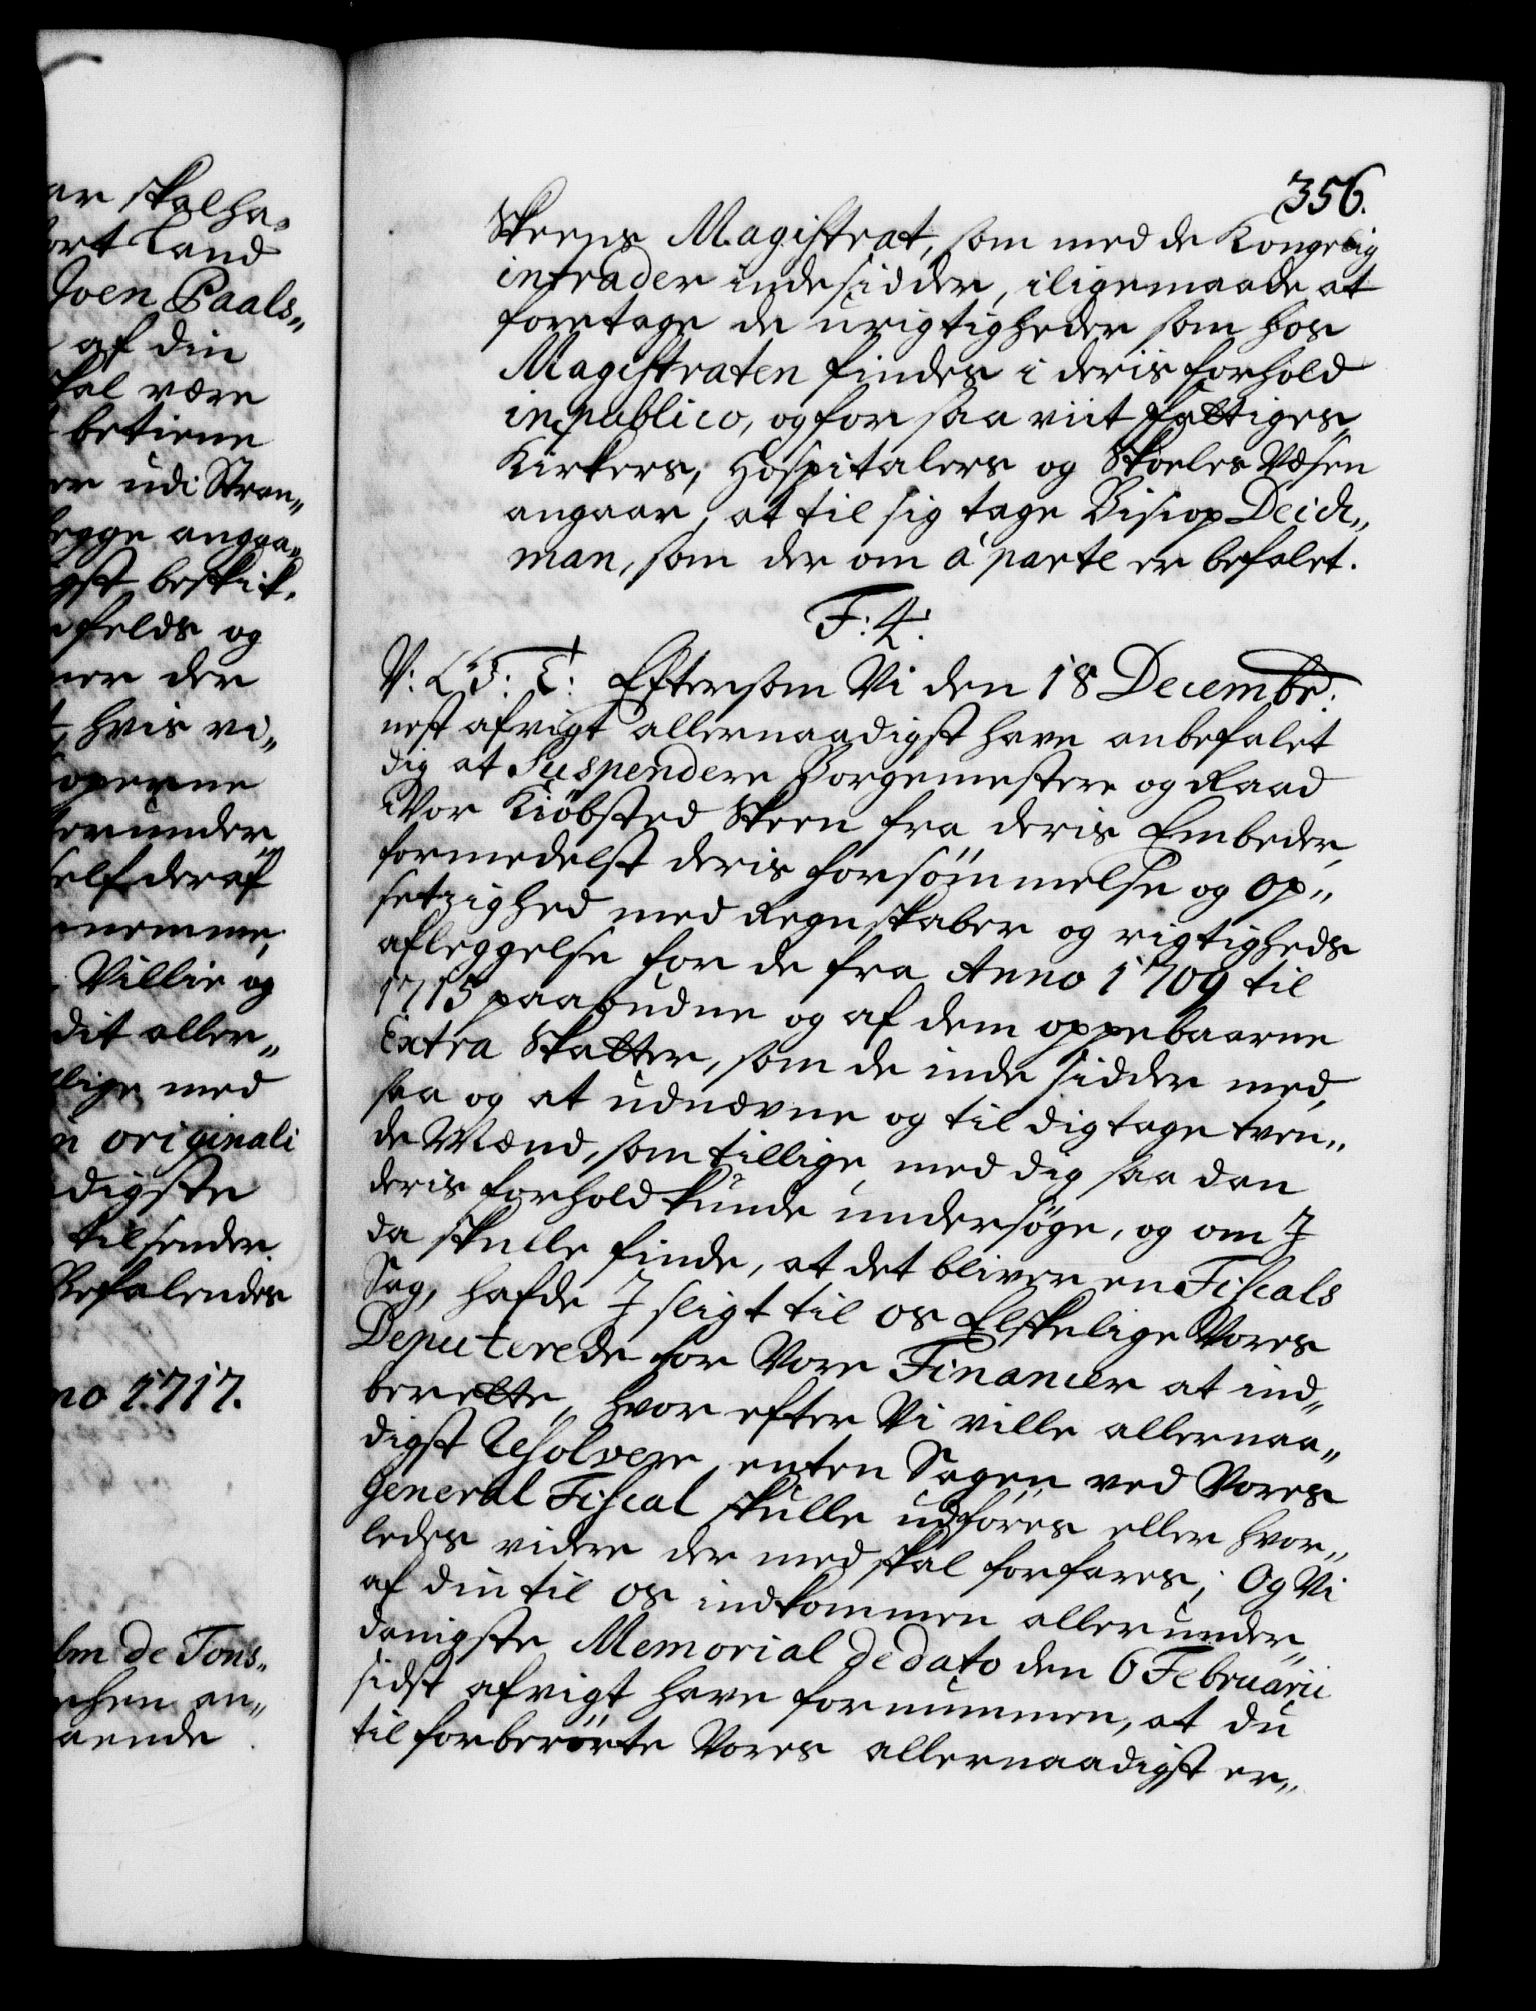 ar skalha„
ort Land
Joen Paals„
af din
skal være
betiene
er udi Strøm„
legge angaa„
gst beskik„
felds og
ner der
hvis vi„
operne
erunder
self deraf
nemme,
Villie og
dit aller„
lige med
n originali
digste
tilsender.
Befalendes
no 1717.
lm de Tons„
ehen an„
aende
356.
Skeens Magistrat, som med de Kongelig
intrader indesidder, iligemaade at
foretage de urigtigheder som hos
Magistraten findes i deris forhold
in publico, og for saa viit fattiges,
Kirkers, Hospitalers og Skoeles Væsen
angaar, at til sig tage Bisiop Deich„
man, som der om á parte er befalet.
F: 4.
V: G: T: Eftersom Vi den 18 Decembr:
nest afvigt allernaadigst have anbefalet
dig at Suspendere Borgemestere og Raad
i Vor Kiøbsted Skeen fra deris Embeder,
formedelst deris forsømmelse og op„
setzighed med Regnskaber og rigtigheds
afleggelse for de fra Anno 1709 til
1715 paabudne og af dem oppebaarne
Extra Skatter, som de inde sidder med,
saa og at udnævne og til dig tage tven„
de Mænd, som tillige med dig saa dan
deris forhold kunde undersøge, og om I
da skulle finde, at det bliver en Fiscals
Sag, hafde I sligt til os Elskelige Vores
Deputerede for Vore Financer at ind„
berette, hvor efter Vi ville allernaa„
digst Resolvere, enten Sagen ved Vores
General Fiscal skulle udføres eller hvor„
ledes videre der med skal forfares; Og Vi
af din til os indkommen allerunder„
danigste Memorial de dato den 6 Februarii
sidst afvigt have fornummen, at du
til forberørte Vores allernaadigst er„